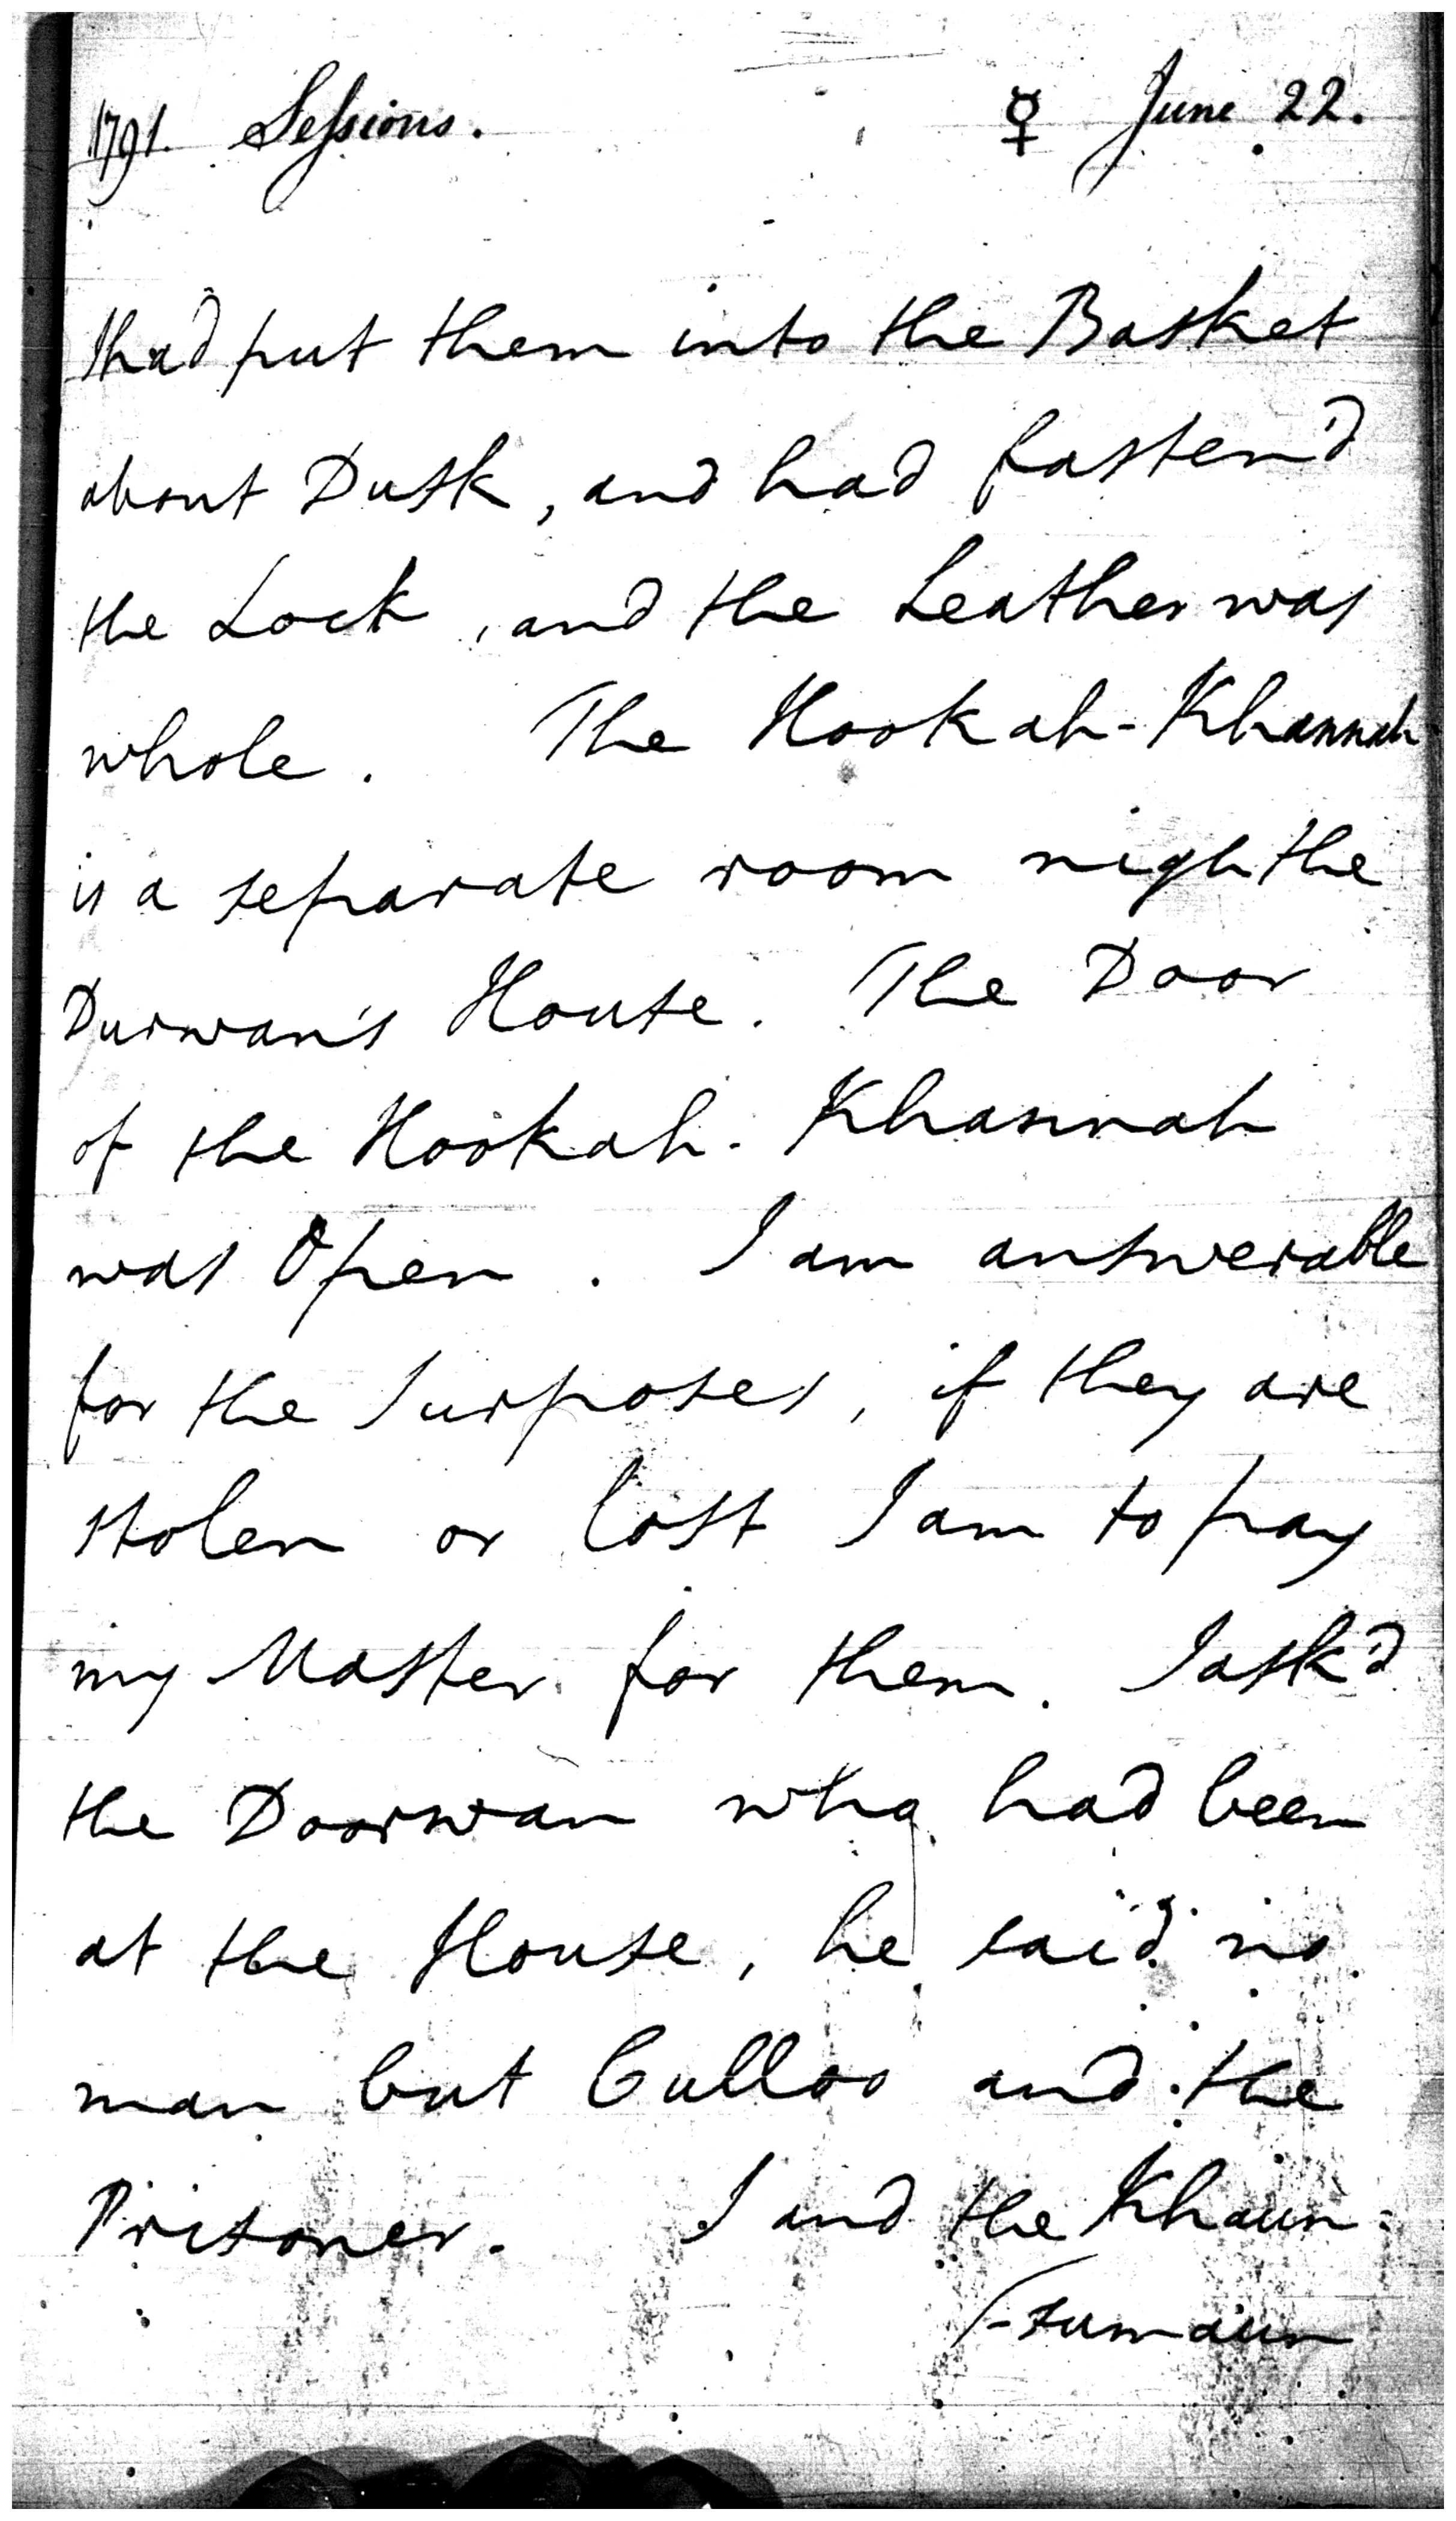 1791. Sessions. ☿ June 22.
I had put them into the Basket
about Dusk, and had fasten'd
the Lock, and the Leather was
whole. The Hookah-Khannah
is a separate room nigh the
Durwan's House. The Door
of the Hookah-Khannah
was Open. I am answerable
for the Surposes, if they are
stolen or lost I am to pay
my Master for them. I ask'd
the Doorwan who had been
at the House, he said no
man but Culloo and the
Prisoner. I and the Khaun=
-sumaun